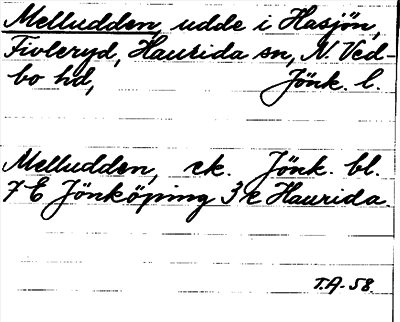 Melludden, udde i Hasjön,
Fivleryd, Haurida sn, N. Ved-
bo hd, Jönk. l.
Melludden, ek. Jönk. bl.
7 E Jönköping 3 e Haurida.
T.A-58.